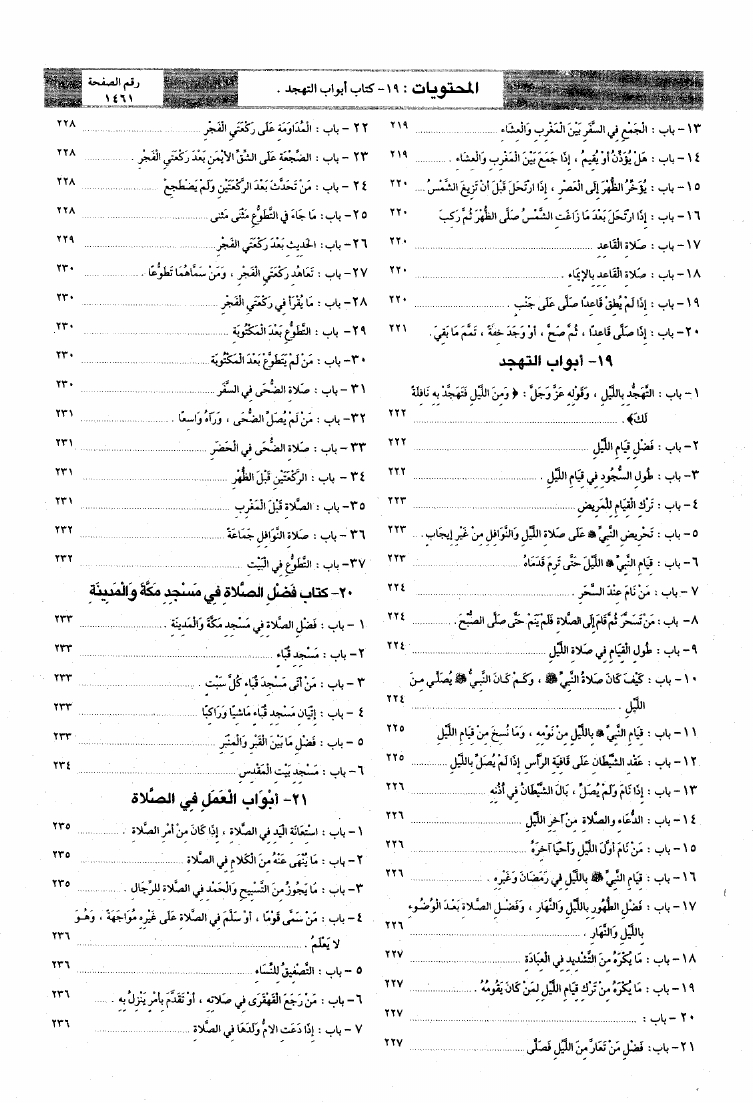 المحتويات : ١٩- كتاب أبواب التهجد .
رقم الصفحة
١٤٦١
١٣- باب : الْجَمْعِ فِي السَّفَرِ بَيْنَ الْمَغْرِبِ وَالْعِشَاءِ ........ ٢١٩
١٤- باب : هَلْ يُؤَذِّنُ أَوْ يُقِيمُ ، إِذَا جَمَعَ بَيْنَ الْمَغْرِبِ وَالْعِشَاءِ . ........ ٢١٩
١٥- باب : يُؤَخِّرُ الظُّهْرَ إِلَى الْعَصْرِ ، إِذَا ارْتَحَلَ قَبْلَ أَنْ تَزِيغَ الشَّمْسُ ........ ٢٢٠
١٦- باب : إِذَا ارْتَحَلَ بَعْدَ مَا زَاغَتِ الشَّمْسُ صَلَّى الظُّهْرَ ثُمَّ رَكِبَ ٢٢٠
١٧- باب : صَلَاةِ الْقَاعِدِ ........ ٢٢٠
١٨- باب : صَلَاةِ الْقَاعِدِ بِالإِيمَاءِ . ........ ٢٢٠
١٩- باب : إِذَا لَمْ يُطِقْ قَاعِدًا صَلَّى عَلَى جَنْبٍ . ........ ٢٢٠
٢٠- باب : إِذَا صَلَّى قَاعِدًا ، ثُمَّ صَحَّ ، أَوْ وَجَدَ خِفَّةً ، تَمَّمَ مَا بَقِيَ. ٢٢١
١٩- أبواب التهجد
١- باب : التَّهَجُّدِ بِاللَّيْلِ ، وَقَوْلِهِ عَزَّ وَجَلَّ : ﴿ وَمِنَ اللَّيْلِ فَتَهَجَّدْ بِهِ نَافِلَةً
لَكَ﴾. ........ ٢٢٢
٢- باب : فَضْلِ قِيَامِ اللَّيْلِ ........ ٢٢٢
٣- باب : طُولِ السُّجُودِ فِي قِيَامِ اللَّيْلِ . ........ ٢٢٢
٤- باب : تَرْكِ الْقِيَامِ لِلْمَرِيضِ ........ ٢٢٣
٥- باب : تَحْرِيضِ النَّبِيِّ ﷺ عَلَى صَلَاةِ اللَّيْلِ وَالنَّوَافِلِ مِنْ غَيْرِ إِيجَابٍ. ........ ٢٢٣
٦- باب : قِيَامِ النَّبِيِّ ﷺ اللَّيْلَ حَتَّى تَرِمَ قَدَمَاهُ ........ ٢٢٣
٧- باب : مَنْ نَامَ عِنْدَ السَّحَرِ . ........ ٢٢٤
٨- باب: مَنْ تَسَحَّرَ ثُمَّ قَامَ إِلَى الصَّلَاةِ فَلَمْ يَنَمْ حَتَّى صَلَّى الصُّبْحَ . ........ ٢٢٤
٩- باب : طُولِ الْقِيَامِ فِي صَلَاةِ اللَّيْلِ ........ ٢٢٤
١٠- باب : كَيْفَ كَانَ صَلَاةُ النَّبِيِّ ﷺ ، وَكَمْ كَانَ النَّبِيُّ ﷺ يُصَلِّي مِنَ
اللَّيْلِ . ........ ٢٢٤
١١- باب : قِيَامِ النَّبِيِّ ﷺ بِاللَّيْلِ مِنْ نَوْمِهِ ، وَمَا نُسِخَ مِنْ قِيَامِ اللَّيْلِ ٢٢٥
١٢- باب : عَقْدِ الشَّيْطَانِ عَلَى قَافِيَةِ الرَّأْسِ إِذَا لَمْ يُصَلِّ بِاللَّيْلِ ........ ٢٢٥
١٣- باب : إِذَا نَامَ وَلَمْ يُصَلِّ ، بَالَ الشَّيْطَانُ فِي أُذُنِهِ ........ ٢٢٦
١٤- باب : الدُّعَاءِ وَالصَّلَاةِ مِنْ آخِرِ اللَّيْلِ ........ ٢٢٦
١٥- باب : مَنْ نَامَ أَوَّلَ اللَّيْلِ وَأَحْيَا آخِرَهُ ........ ٢٢٦
١٦- باب : قِيَامِ النَّبِيِّ ﷺ بِاللَّيْلِ فِي رَمَضَانَ وَغَيْرِهِ . ........ ٢٢٦
١٧- باب : فَضْلِ الطُّهُورِ بِاللَّيْلِ وَالنَّهَارِ ، وَفَضْلِ الصَّلَاةِ بَعْدَ الْوُضُوءِ
بِاللَّيْلِ وَالنَّهَارِ . ........ ٢٢٦
١٨- باب : مَا يُكْرَهُ مِنَ التَّشْدِيدِ فِي الْعِبَادَةِ ........ ٢٢٧
١٩- باب : مَا يُكْرَهُ مِنْ تَرْكِ قِيَامِ اللَّيْلِ لِمَنْ كَانَ يَقُومُهُ . ........ ٢٢٧
٢٠- باب : ........ ٢٢٧
٢١- باب: فَضْلِ مَنْ تَعَارَّ مِنَ اللَّيْلِ فَصَلَّى ........ ٢٢٧
٢٢- باب : الْمُدَاوَمَةِ عَلَى رَكْعَتَيِ الْفَجْرِ ........ ٢٢٨
٢٣- باب : الضِّجْعَةِ عَلَى الشِّقِّ الأَيْمَنِ بَعْدَ رَكْعَتَيِ الْفَجْرِ . ........ ٢٢٨
٢٤- باب : مَنْ تَحَدَّثَ بَعْدَ الرَّكْعَتَيْنِ وَلَمْ يَضْطَجِعْ ........ ٢٢٨
٢٥- باب: مَا جَاءَ فِي التَّطَوُّعِ مَثْنَى مَثْنَى ........ ٢٢٨
٢٦- باب : الحَدِيثِ بَعْدَ رَكْعَتَيِ الفَجْرِ ........ ٢٢٩
٢٧- باب : تَعَاهُدِ رَكْعَتَيِ الْفَجْرِ ، وَمَنْ سَمَّاهُمَا تَطَوُّعًا . ........ ٢٣٠
٢٨- باب : مَا يُقْرَأُ فِي رَكْعَتَيِ الْفَجْرِ ........ ٢٣٠
٢٩- باب : التَّطَوُّعِ بَعْدَ الْمَكْتُوبَةِ ........ ٢٣٠
٣٠- باب : مَنْ لَمْ يَتَطَوَّعْ بَعْدَ الْمَكْتُوبَةِ ........ ٢٣٠
٣١- باب : صَلَاةِ الضُّحَى فِي السَّفَرِ ........ ٢٣٠
٣٢- باب : مَنْ لَمْ يُصَلِّ الضُّحَى ، وَرَآهُ وَاسِعًا . ........ ٢٣١
٣٣- باب : صَلَاةِ الضُّحَى فِي الْحَضَرِ ........ ٢٣١
٣٤- باب : الرَّكْعَتَيْنِ قَبْلَ الظُّهْرِ ........ ٢٣١
٣٥- باب : الصَّلَاةِ قَبْلَ الْمَغْرِبِ ........ ٢٣١
٣٦- باب : صَلَاةِ النَّوَافِلِ جَمَاعَةً ........ ٢٣٢
٣٧- باب : التَّطَوُّعِ فِي الْبَيْتِ ........ ٢٣٢
٢٠- كتاب فَضْلِ الصَّلَاةِ فِي مَسْجِدِ مَكَّةَ وَالْمَدِينَةِ
١ - باب : فَضْلِ الصَّلَاةِ فِي مَسْجِدِ مَكَّةَ وَالْمَدِينَةِ . ........ ٢٣٣
٢- باب : مَسْجِدِ قُبَاءٍ ........ ٢٣٣
٣ - باب : مَنْ أَتَى مَسْجِدَ قُبَاءٍ كُلَّ سَبْتٍ ........ ٢٣٣
٤ - باب : إِتْيَانِ مَسْجِدِ قُبَاءٍ مَاشِيًا وَرَاكِبًا ........ ٢٣٣
٥ - باب : فَضْلِ مَا بَيْنَ الْقَبْرِ وَالْمِنْبَرِ ........ ٢٣٣
٦- باب : مَسْجِدِ بَيْتِ الْمَقْدِسِ ........ ٢٣٤
٢١- أَبْوَابُ الْعَمَلِ فِي الصَّلَاةِ
١- باب : اسْتِعَانَةِ الْيَدِ فِي الصَّلَاةِ ، إِذَا كَانَ مِنْ أَمْرِ الصَّلَاةِ . ........ ٢٣٥
٢- باب : مَا يُنْهَى عَنْهُ مِنَ الْكَلَامِ فِي الصَّلَاةِ ........ ٢٣٥
٣- باب : مَا يَجُوزُ مِنَ التَّسْبِيحِ وَالْحَمْدِ فِي الصَّلَاةِ لِلرِّجَالِ . ........ ٢٣٥
٤- باب : مَنْ سَمَّى قَوْمًا ، أَوْ سَلَّمَ فِي الصَّلَاةِ عَلَى غَيْرِهِ مُوَاجَهَةً ، وَهُوَ
لَا يَعْلَمُ . ........ ٢٣٦
٥ - باب : التَّصْفِيقُ لِلنِّسَاءِ ........ ٢٣٦
٦- باب : مَنْ رَجَعَ الْقَهْقَرَى فِي صَلَاتِهِ ، أَوْ تَقَدَّمَ بِأَمْرٍ يَنْزِلُ بِهِ . ........ ٢٣٦
٧ - باب : إِذَا دَعَتِ الأُمُّ وَلَدَهَا فِي الصَّلَاةِ ........ ٢٣٦